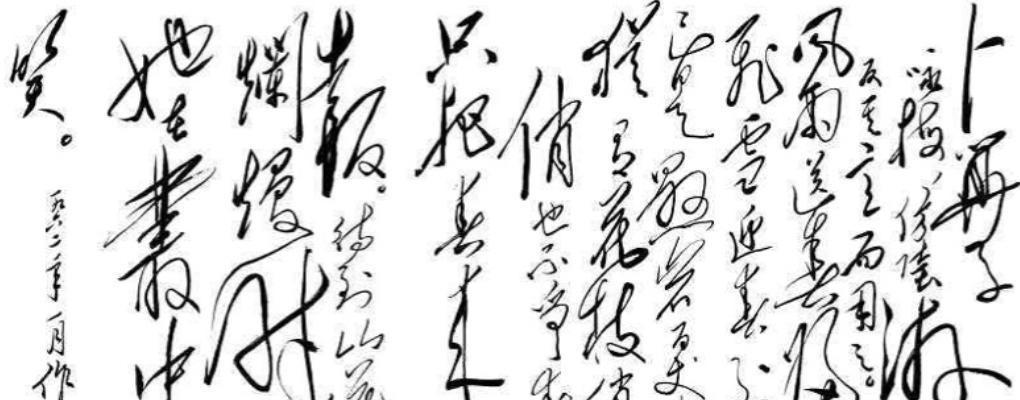 卜算子
咏梅、仿陆游
反其意而用之。
风雨送春归
飞雪迎春到
已是悬岩百丈
犹有花枝俏
俏也不争春
只把春来
报。待到山花
爛漫时
她在叢中
笑。一九六二年一月作